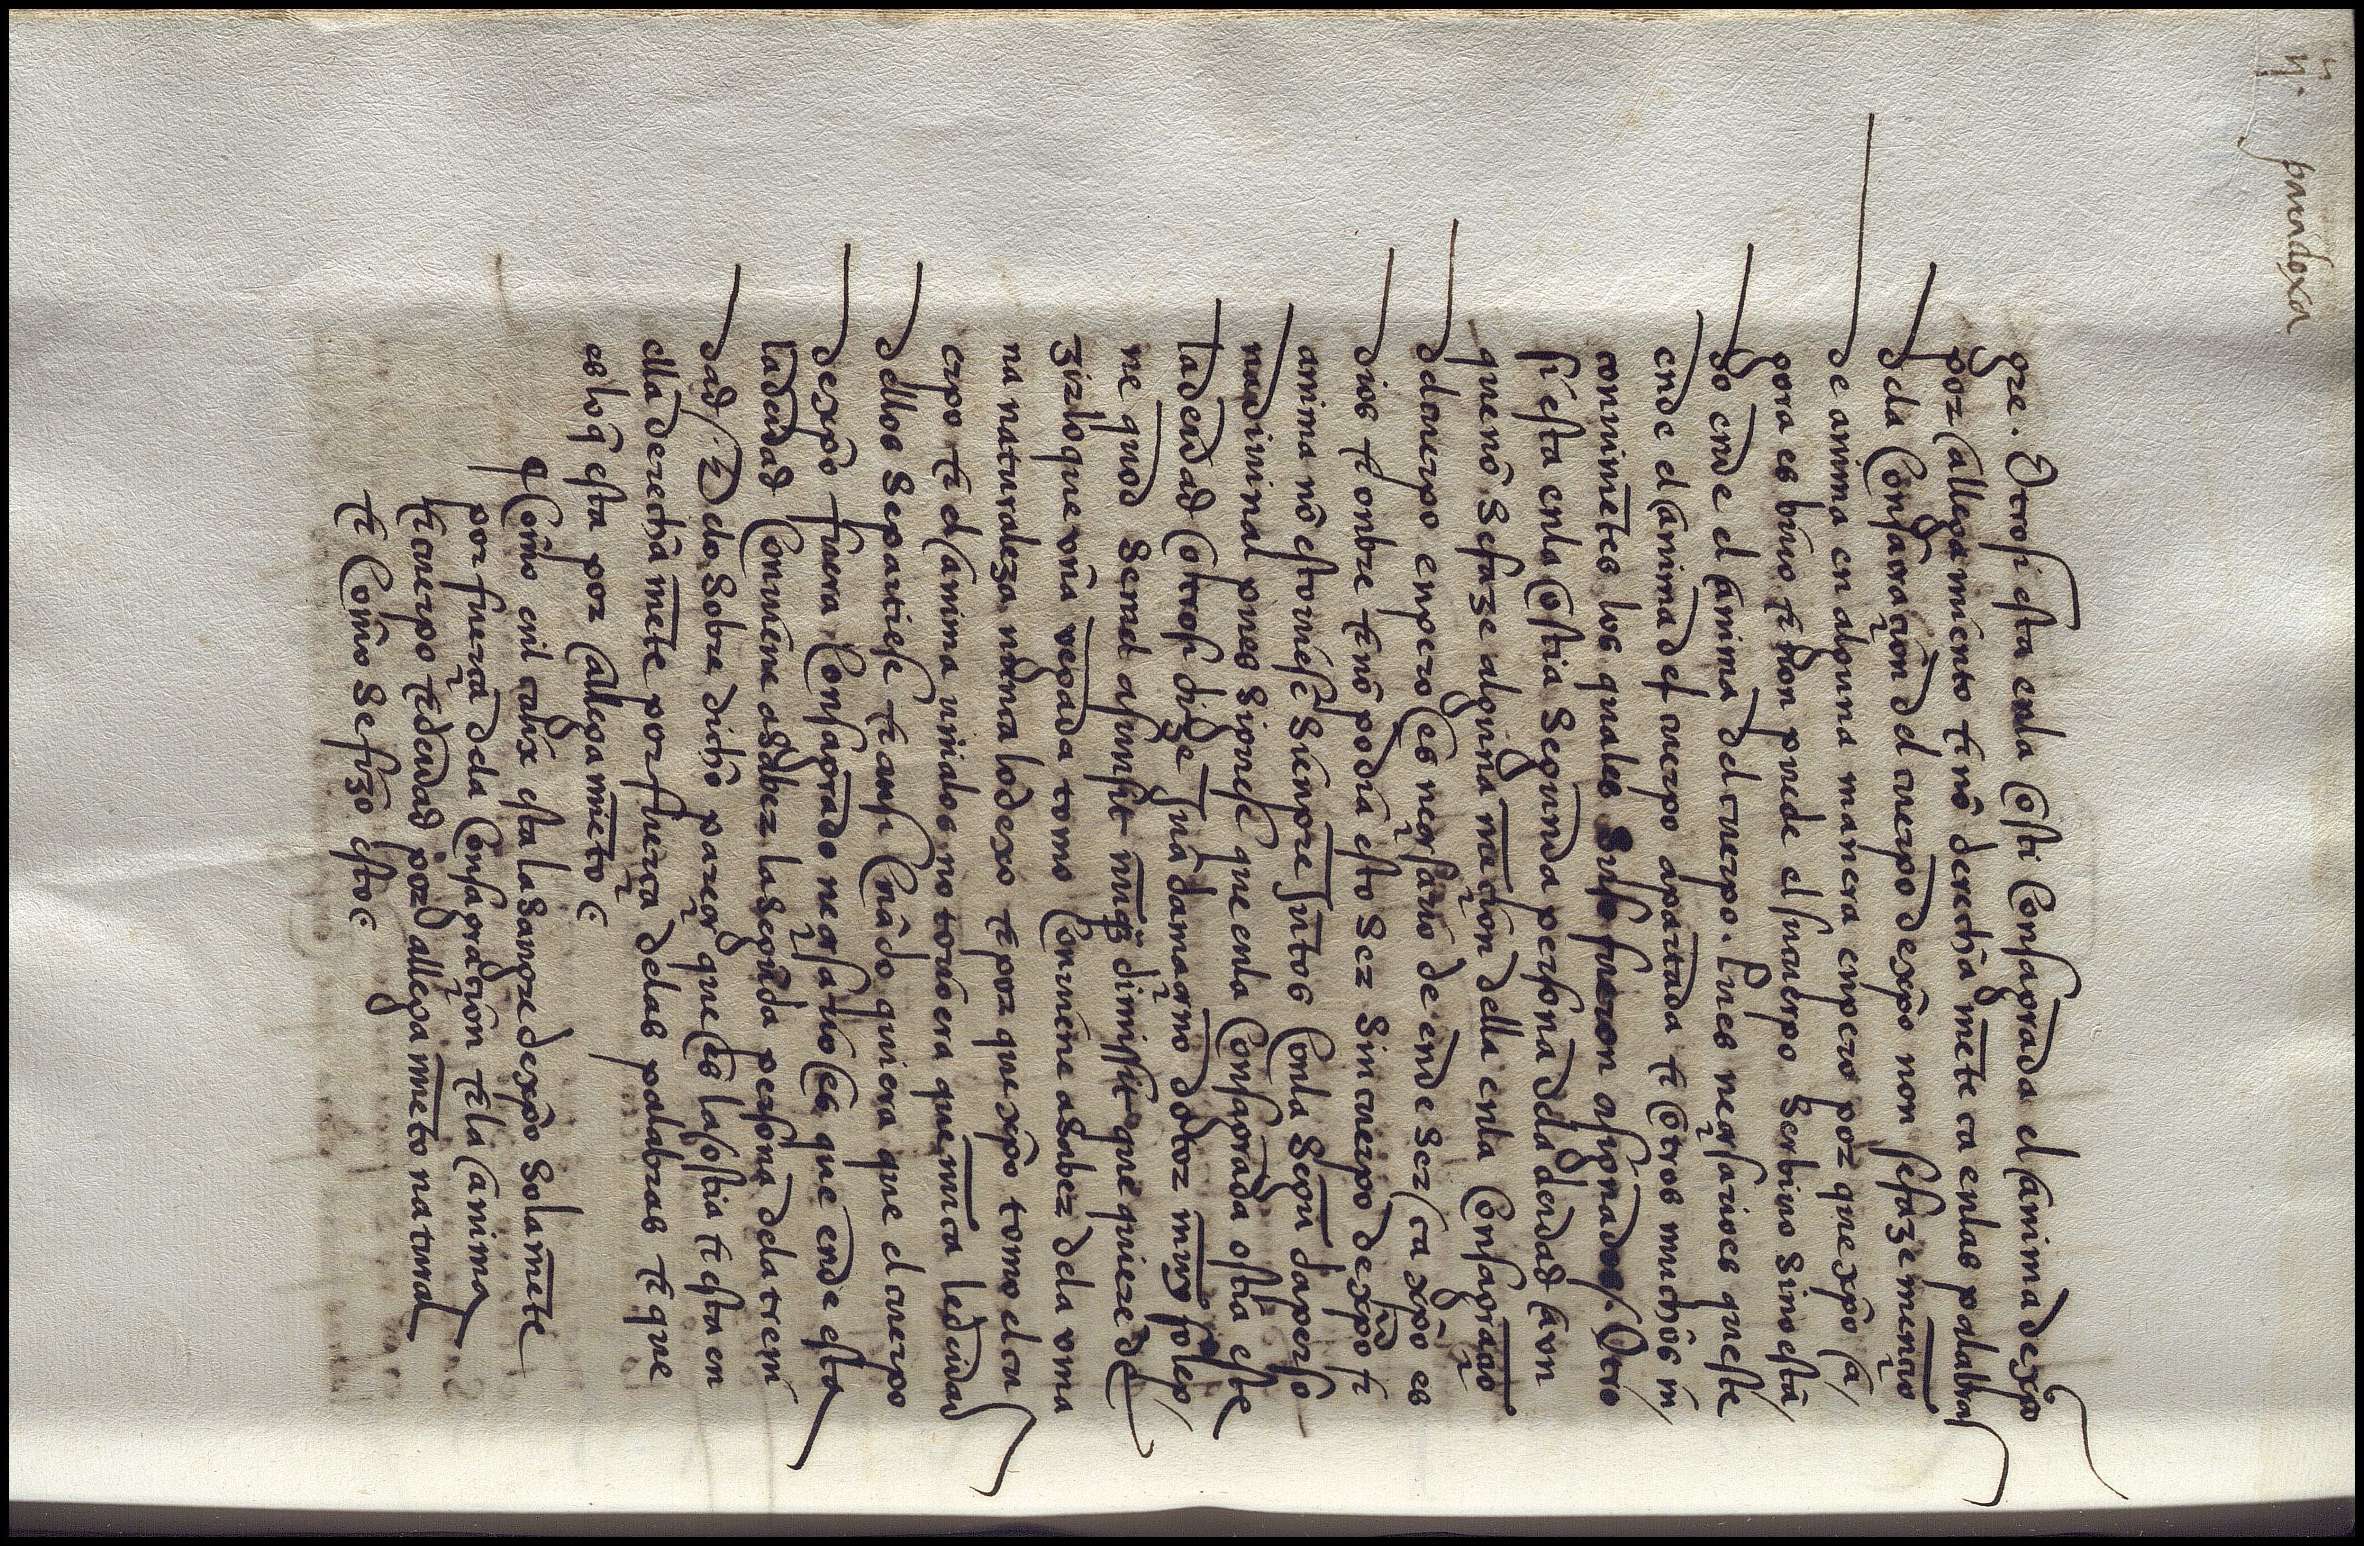 ij. paradoxa
gre. Otrosi esta enla osti consagrada el anima de xpō
por allegamiento τ nō derecha mēte ca enlas palabras
dela consaracion del cuerpo de xpō non se faze mencio
de anima en alguna manera enpero por que xpō a
gora es biuo τ non puede el su cuerpo ser biuo sino esta
do ende el anima del cuerpo. Pues neçsario es que este
ende el anima del cuerpo apartada τ otros muchos in
conuinietes los quales suso fueron asignados. Otro
si esta enla ostia segunda persona dela deidad avn
que nō se faze alguna mēcion della enla consagraçio
del cuerpo enpero es neçsario de ende ser ca xpō es
dios τ onbre τ nō podia esto ser sin cuerpo de xpō τ
anima nō estouiese sienpre iūtos conla segūda perso
na diuinal pues si ouiese que enla consagrada ostia este
la deidad otrosi dize iuā damaçeno dotor muy solep
ne quod semel asunsit nūq̄ dimissit que quiere de
zir lo que vna vegada tomo conuiene a saber dela vma
na naturaleza nūnca lo dexo τ por que xpō tomo el cu
erpo τ el anima nūnca los no touiera que nūca le diuidi
dellos se partiese τ ansi quādo quiera que el cuerpo
de xpō fuera consagrado neçsario es que ende esta
la deidad conuiene a saber la segūda persona dela treni
dad / Delo sobre dicho pareçe que es la ostia τ esta en
ella derecha mēte por fuerça delas palabras τ que
es lo q̄ esta por allegamieto
Como enel calix esta la sangre de xpō sola mēte
por fuerça dela consagraçion τ la anima
τ cuerpo τ deidad por allegamieto natural
τ como se fizo esto